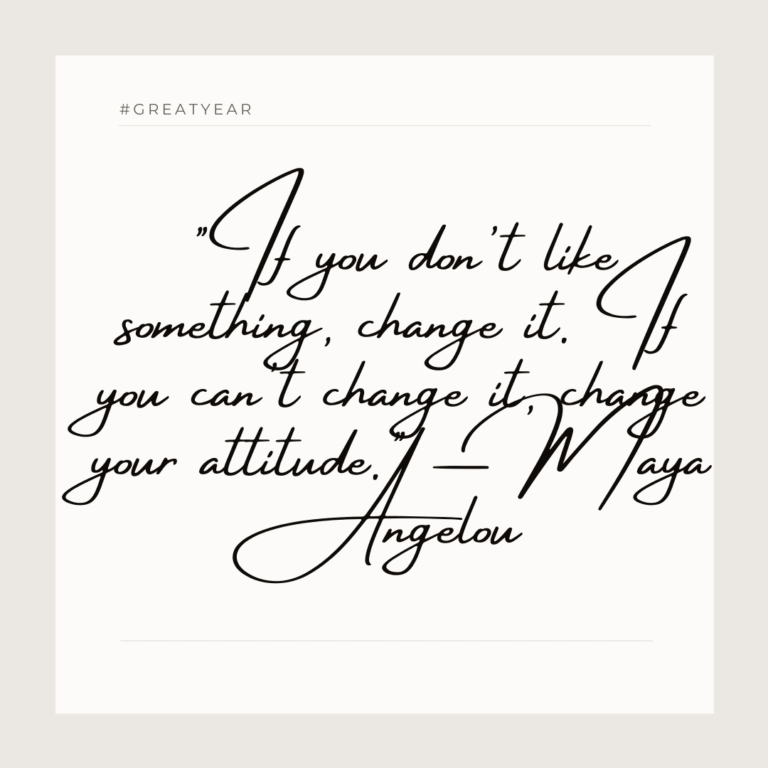 #GREATYEAR
"If you don't like
something, change it. If
you can't change it, change
your attitude." — Maya
Angelou